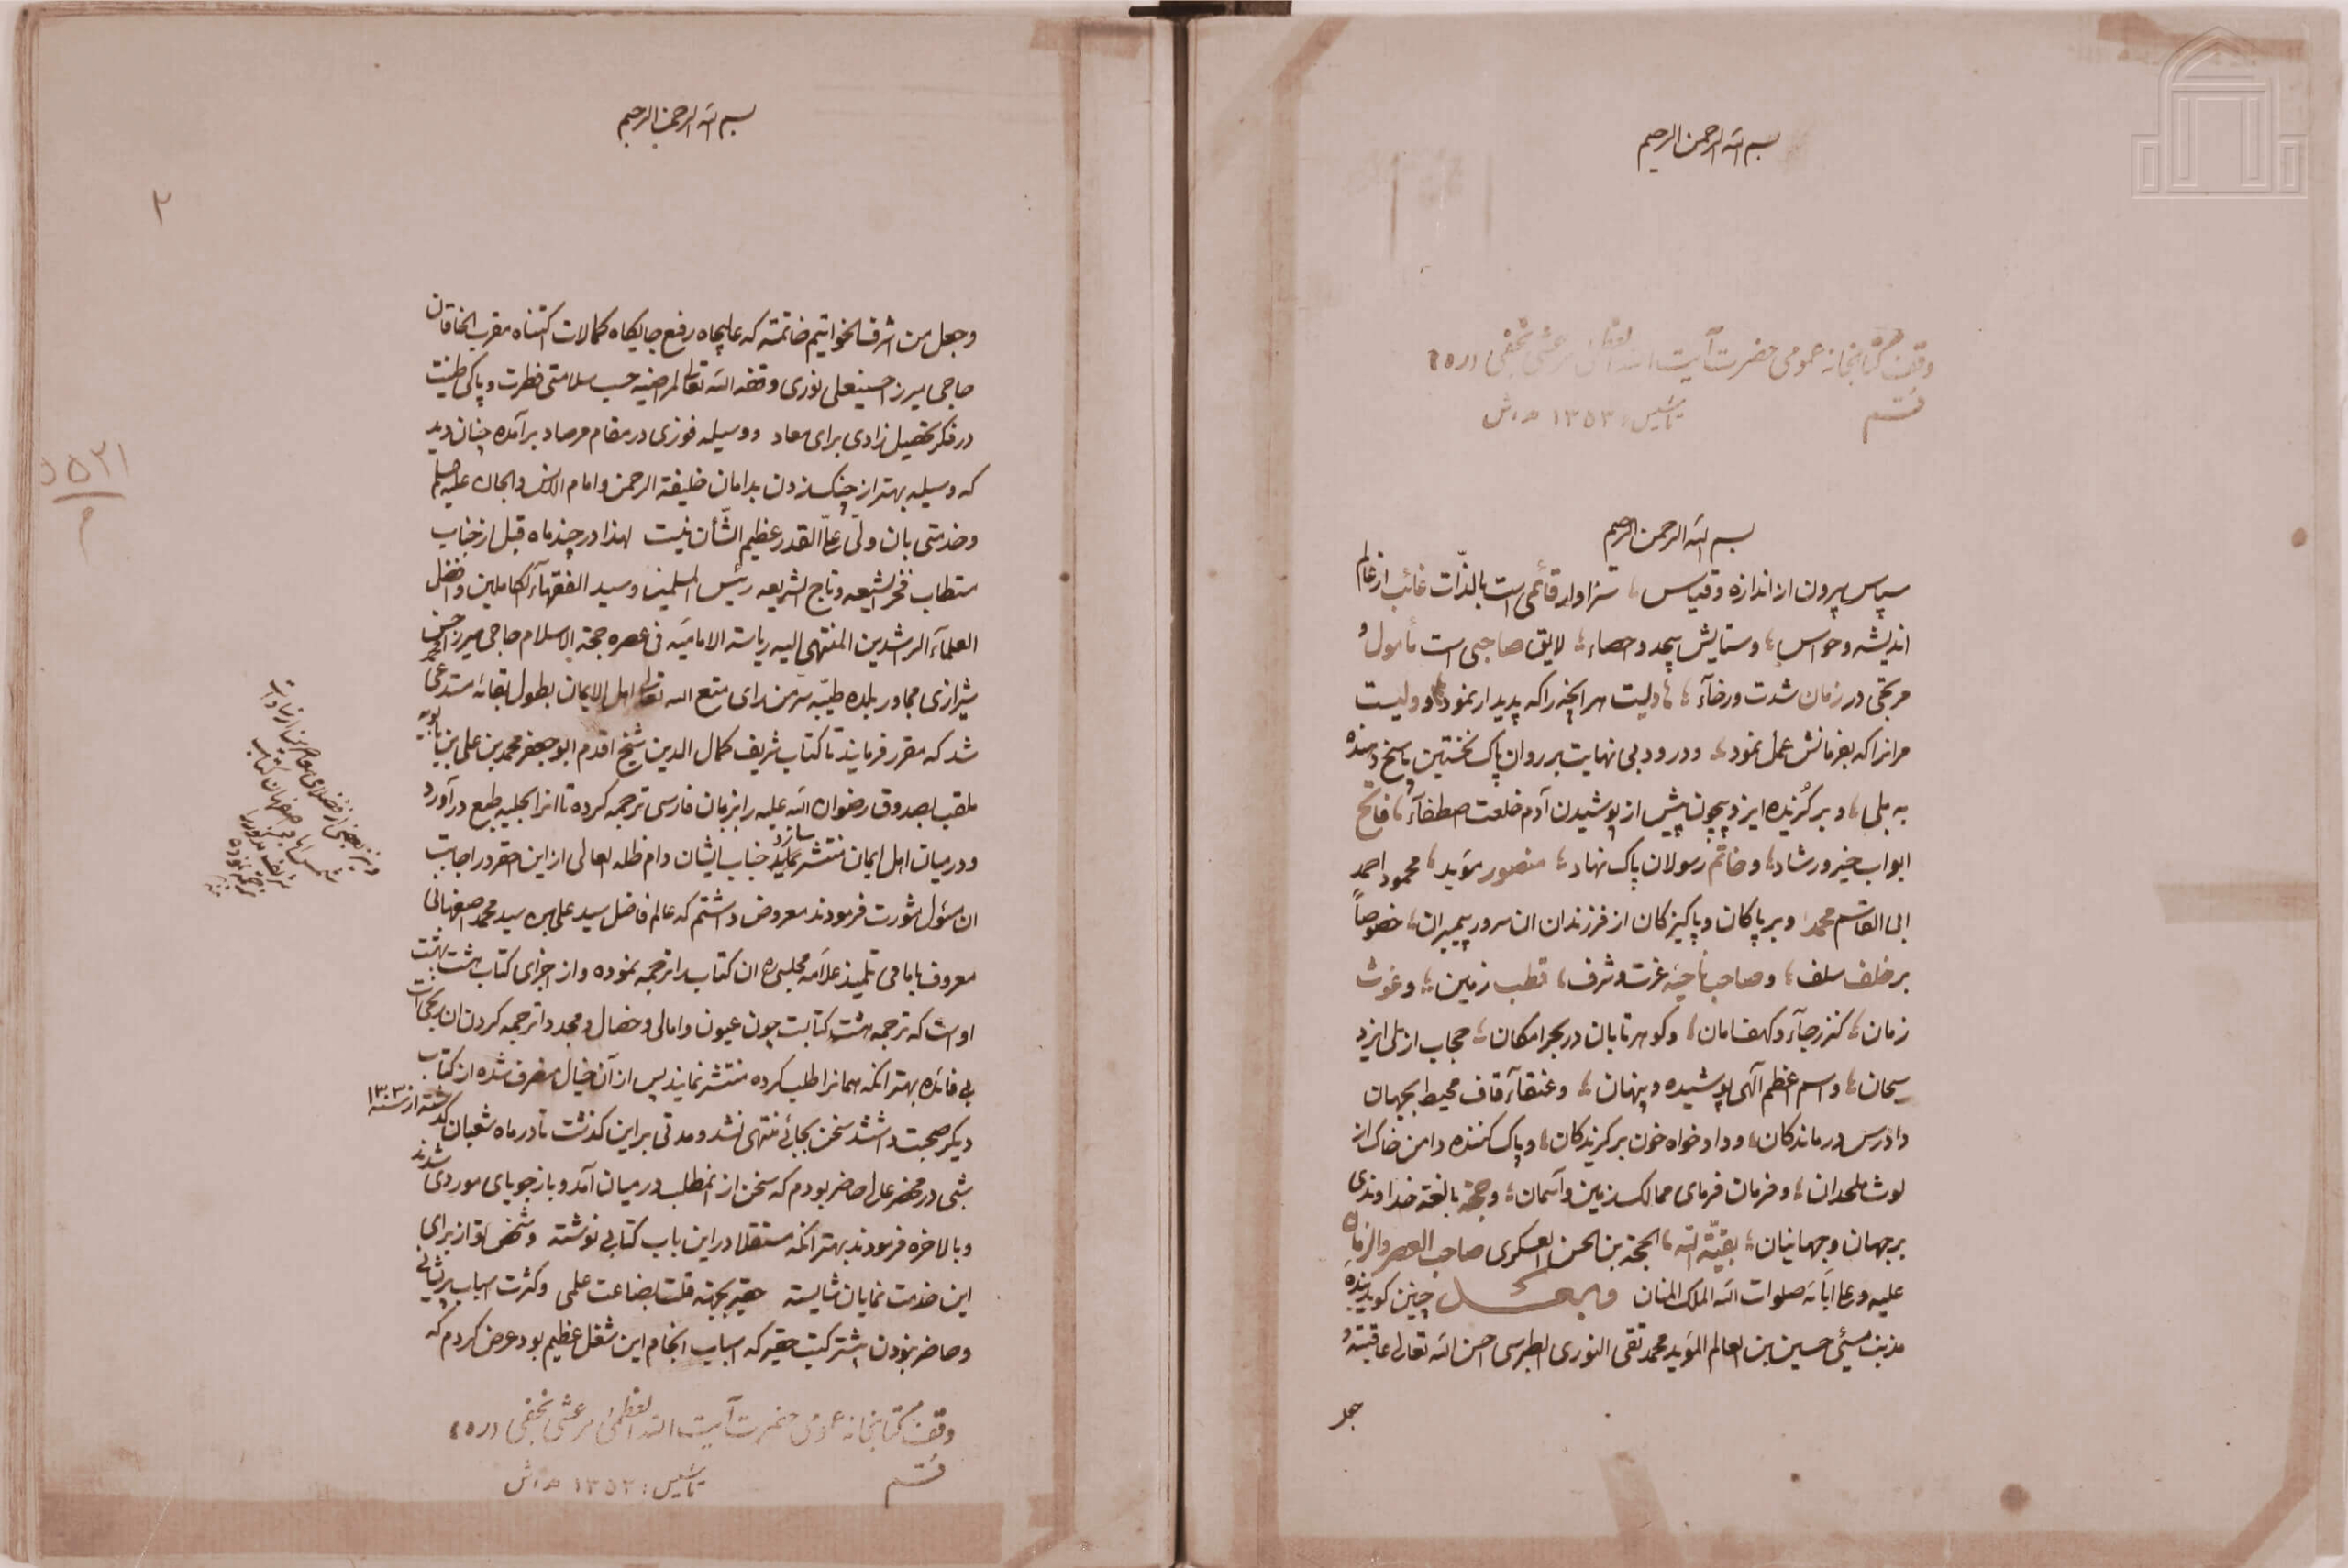 بسم الله الرحمن الرحیم
وقف کتابخانه عمومی حضرت آیت الله العظمی مرعشی نجفی (ره)
قم
تأسیس: ۱۳۵۳ ه.ش
بسم الله الرحمن الرحیم
سپاس بیرون از اندازه و قیاس، سزاوار قائمی است بالذّات غائب از عالم
اندیشه و حواس، و ستایش بیحد و احصاء، لایق صاحبی است مأمول و
مرتجی در زمان شدت و رخآء، دلیت هر آنچه را که پدیدار نمود، و ولیست
مر انرا که بفرمانش عمل نمود، و درود بی نهایت بر روان پاک نخستین پاسخ دهنده
به بلی، و برگزیده ایزد بیچون پیش از پوشیدن آدم خلعت اصطفآء، فاتح
ابواب خیر و رشاد، و خاتم رسولان پاک نهاد، منصور مؤید، محمود احمد
ابی القاسم محمد و بر پاکان و پاکیزکان از فرزندان ان سرور پیمبران، خصوصاً
بر خلف سلف، و صاحب ناحیهٔ عزت و شرف، قطب زمین، و غوث
زمان، کنز رجآء و کهف امان، و کوهر تابان در بحر امکان، حجاب ازلی ایزد
سبحان، و اسم اعظم آلهی پوشیده و پنهان، و عنقآء قاف محیط بجهان
دادرس درماندکان، و دادخواه خون برکزیدکان، و پاک کننده دامن خاک از
لوث ملحدان، و فرمان فرمای ممالک زمین و آسمان، و حجة بالغه خداوندی
بر جهان و جهانیان، بقیّة الله، الحجة بن الحسن العسکری صاحب العصر والزمان
علیه و علی آبائه صلوات الله الملک المنان وبعد چنین کوید بنده
مذنب مسیٔ حسین بن العالم المؤید محمد تقی النوری الطبرسی احسن الله تعالی عاقبته و
جعل
بسم الله الرحمن الرحیم
۲
وجعل من اشرف الخواتیم خاتمته که عالیجاه رفیع جایکاه کمالات اکتناه مقرب الخاقان
حاجی میرزا حسینعلی نوری وفقه الله تعالی لمراضیه حسب سلامتی فطرت و پاکی طینت
در فکر تحصیل زادی برای معاد و وسیله فوزی در مقام مرصاد برآمده چنان دید
که وسیله بهتر از چنک زدن بدامان خلیفة الرحمن و امام الانس والجان علیه السلام
و خدمتی بان ولی عالی القدر عظیم الشّأن نیست لهذا در چند ماه قبل از جناب
مستطاب فخر الشیعه و تاج الشریعه رئیس المسلمین و سید الفقهآء الکاملین و افضل
العلمآء الراشدین المنتهی الیه ریاسة الامامیّه فی عصره حجة الاسلام حاجی میرزا محمد حسن
شیرازی مجاور بلده طیّبه سرّ من رای متع الله تعالی اهل الایمان بطول بقائه مستدعی
شد که مقرر فرمایند تا کتاب شریف کمال الدین شیخ اقدم ابو جعفر محمد بن علی بن بابویه
ملقب بصدوق رضوان الله علیه را بزبان فارسی ترجمه کرده تا انرا بحلیه طبع درآورد
و در میان اهل ایمان منتشر سازد جناب ایشان دام ظله العالی از این احقر در اجابت
ان مسئول مشورت فرمودند معروض داشتم که عالم فاضل سید علی بن سید محمد اصفهانی
معروف بامامی تلمیذ علامه مجلسی ره ان کتاب را ترجمه نموده و از اجزای کتاب هشت بهشت
اوست که ترجمه هشت کتابست چون عیون و امالی و خصال و مجددا ترجمه کردن ان رنجی است
بی فائده بهتر انکه همانرا طلب کرده منتشر نمایند پس از آن خیال منصرف شده از کتاب
دیکر صحبت داشتند سخن بجائی منتهی نشد و مدتی بر این کذشت تا در ماه شعبان کذشته از سنه ۱۳۰۳
شبی در محضر عالی حاضر بودم که سخن از انمطلب در میان آمد و باز جویای موردی شدند
و بالاخره فرمودند بهتر انکه مستقلا در این باب کتابی نوشته و شخص تو از برای
این خدمت نمایان شایسته حقیر بجهة قلت بضاعت علمی و کثرت اسباب پریشانی
و حاضر نبودن بیشتر کتب حقیر که اسباب انجام این شغل عظیم بود عرض کردم که
وقف کتابخانه عمومی حضرت آیت الله العظمی مرعشی نجفی (ره)
قم
تأسیس: ۱۳۵۳ ه.ش